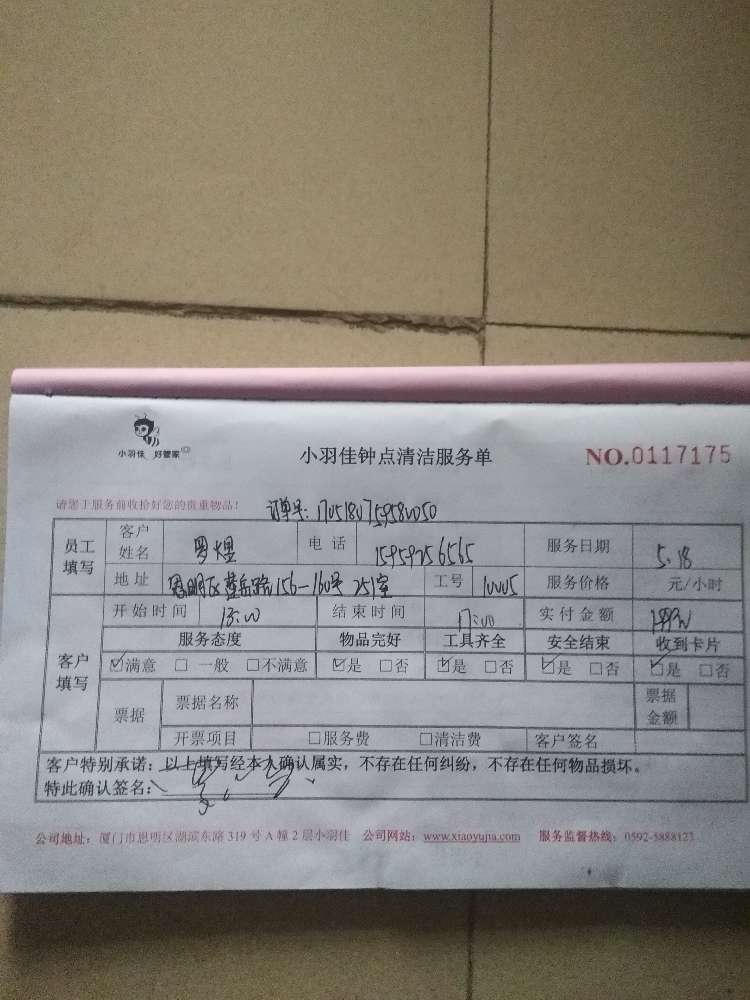 小羽佳 好管家
小羽佳钟点清洁服务单
NO.0117175
请您于服务前收拾好您的贵重物品!
订单号:
员工填写 客户姓名 罗煜 电话 15959256565 服务日期 5.18
地址 思明区 路156-160号 251室 工号 服务价格 元/小时
客户填写 开始时间 13:00 结束时间 17:00 实付金额
服务态度 物品完好 工具齐全 安全结束 收到卡片
☑满意 □一般 □不满意 ☑是 □否 ☑是 □否 ☑是 □否 ☑是 □否
票据 票据名称 票据金额
开票项目 □服务费 □清洁费 客户签名
客户特别承诺:以上填写经本人确认属实,不存在任何纠纷,不存在任何物品损坏。
特此确认签名:
公司地址:厦门市思明区湖滨东路319号A幢2层小羽佳 公司网站:www.xiaoyujia.com 服务监督热线:0592-5888123